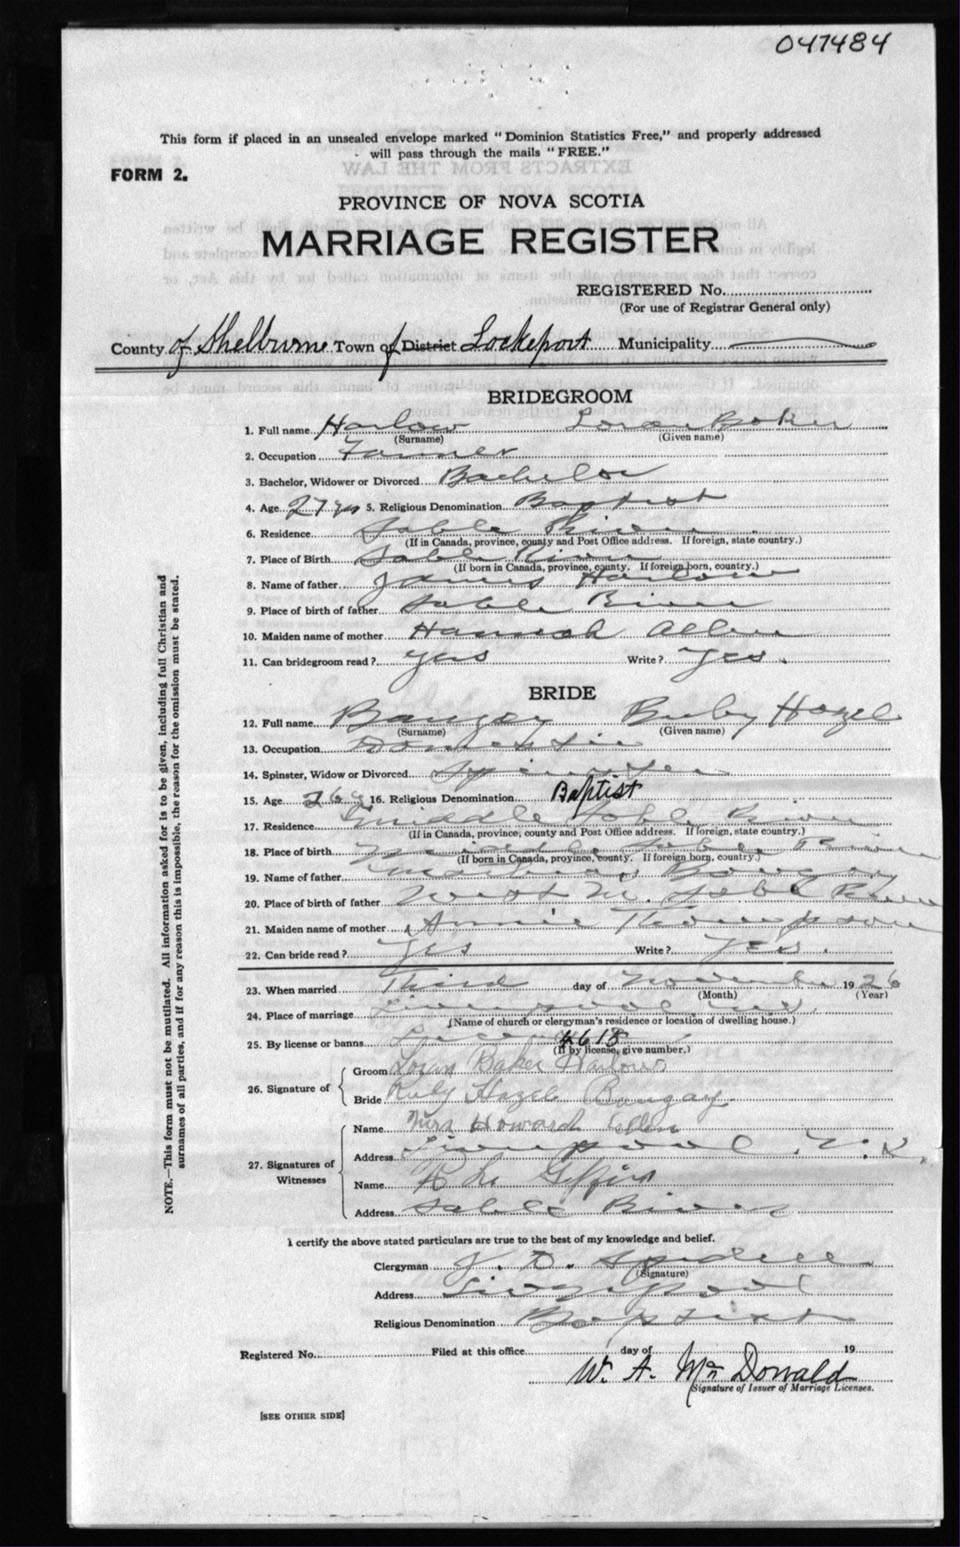 047484
This form if placed in an unsealed envelope marked "Dominion Statistics Free," and properly addressed
will pass through the mails "FREE."
FORM 2.
PROVINCE OF NOVA SCOTIA
MARRIAGE REGISTER
REGISTERED No.
(For use of Registrar General only)
County of Shelburne Town of District Lockeport Municipality
BRIDEGROOM
1. Full name Harlow Loran Baker
(Surname) (Given name)
2. Occupation Farmer
3. Bachelor, Widower or Divorced Bachelor
4. Age 27 yrs 5. Religious Denomination Baptist
6. Residence Sable River
(If in Canada, province, county and Post Office address. If foreign, state country.)
7. Place of Birth Sable River
(If born in Canada, province, county. If foreign born, country.)
8. Name of father James Harlow
9. Place of birth of father Sable River
10. Maiden name of mother Hannah Allen
11. Can bridegroom read? Yes Write? Yes.
BRIDE
12. Full name Bangay Ruby Hazel
(Surname) (Given name)
13. Occupation Domestic
14. Spinster, Widow or Divorced Spinster
15. Age 26 16. Religious Denomination Baptist
17. Residence Middle Sable River
(If in Canada, province, county and Post Office address. If foreign, state country.)
18. Place of birth Middle Sable River
(If born in Canada, province, county. If foreign born, country.)
19. Name of father Bangay
20. Place of birth of father Sable River
21. Maiden name of mother Annie Thompson
22. Can bride read? Yes Write? Yes.
23. When married Third day of November 1926
(Month) (Year)
24. Place of marriage Liverpool
(Name of church or clergyman's residence or location of dwelling house.)
25. By license or banns License 4618
(If by license, give number.)
26. Signature of
Groom Loran Baker Harlow
Bride Ruby Hazel Bangay
27. Signatures of Witnesses
Name Mrs Howard
Address Liverpool N.S.
Name Giffin
Address Sable River
I certify the above stated particulars are true to the best of my knowledge and belief.
Clergyman
(Signature)
Address Liverpool
Religious Denomination Baptist
Registered No. Filed at this office day of 19
W. A. McDonald
Signature of Issuer of Marriage Licenses.
[SEE OTHER SIDE]
NOTE.—This form must not be mutilated. All information asked for is to be given, including full Christian and
surnames of all parties, and if for any reason this is impossible, the reason for the omission must be stated.